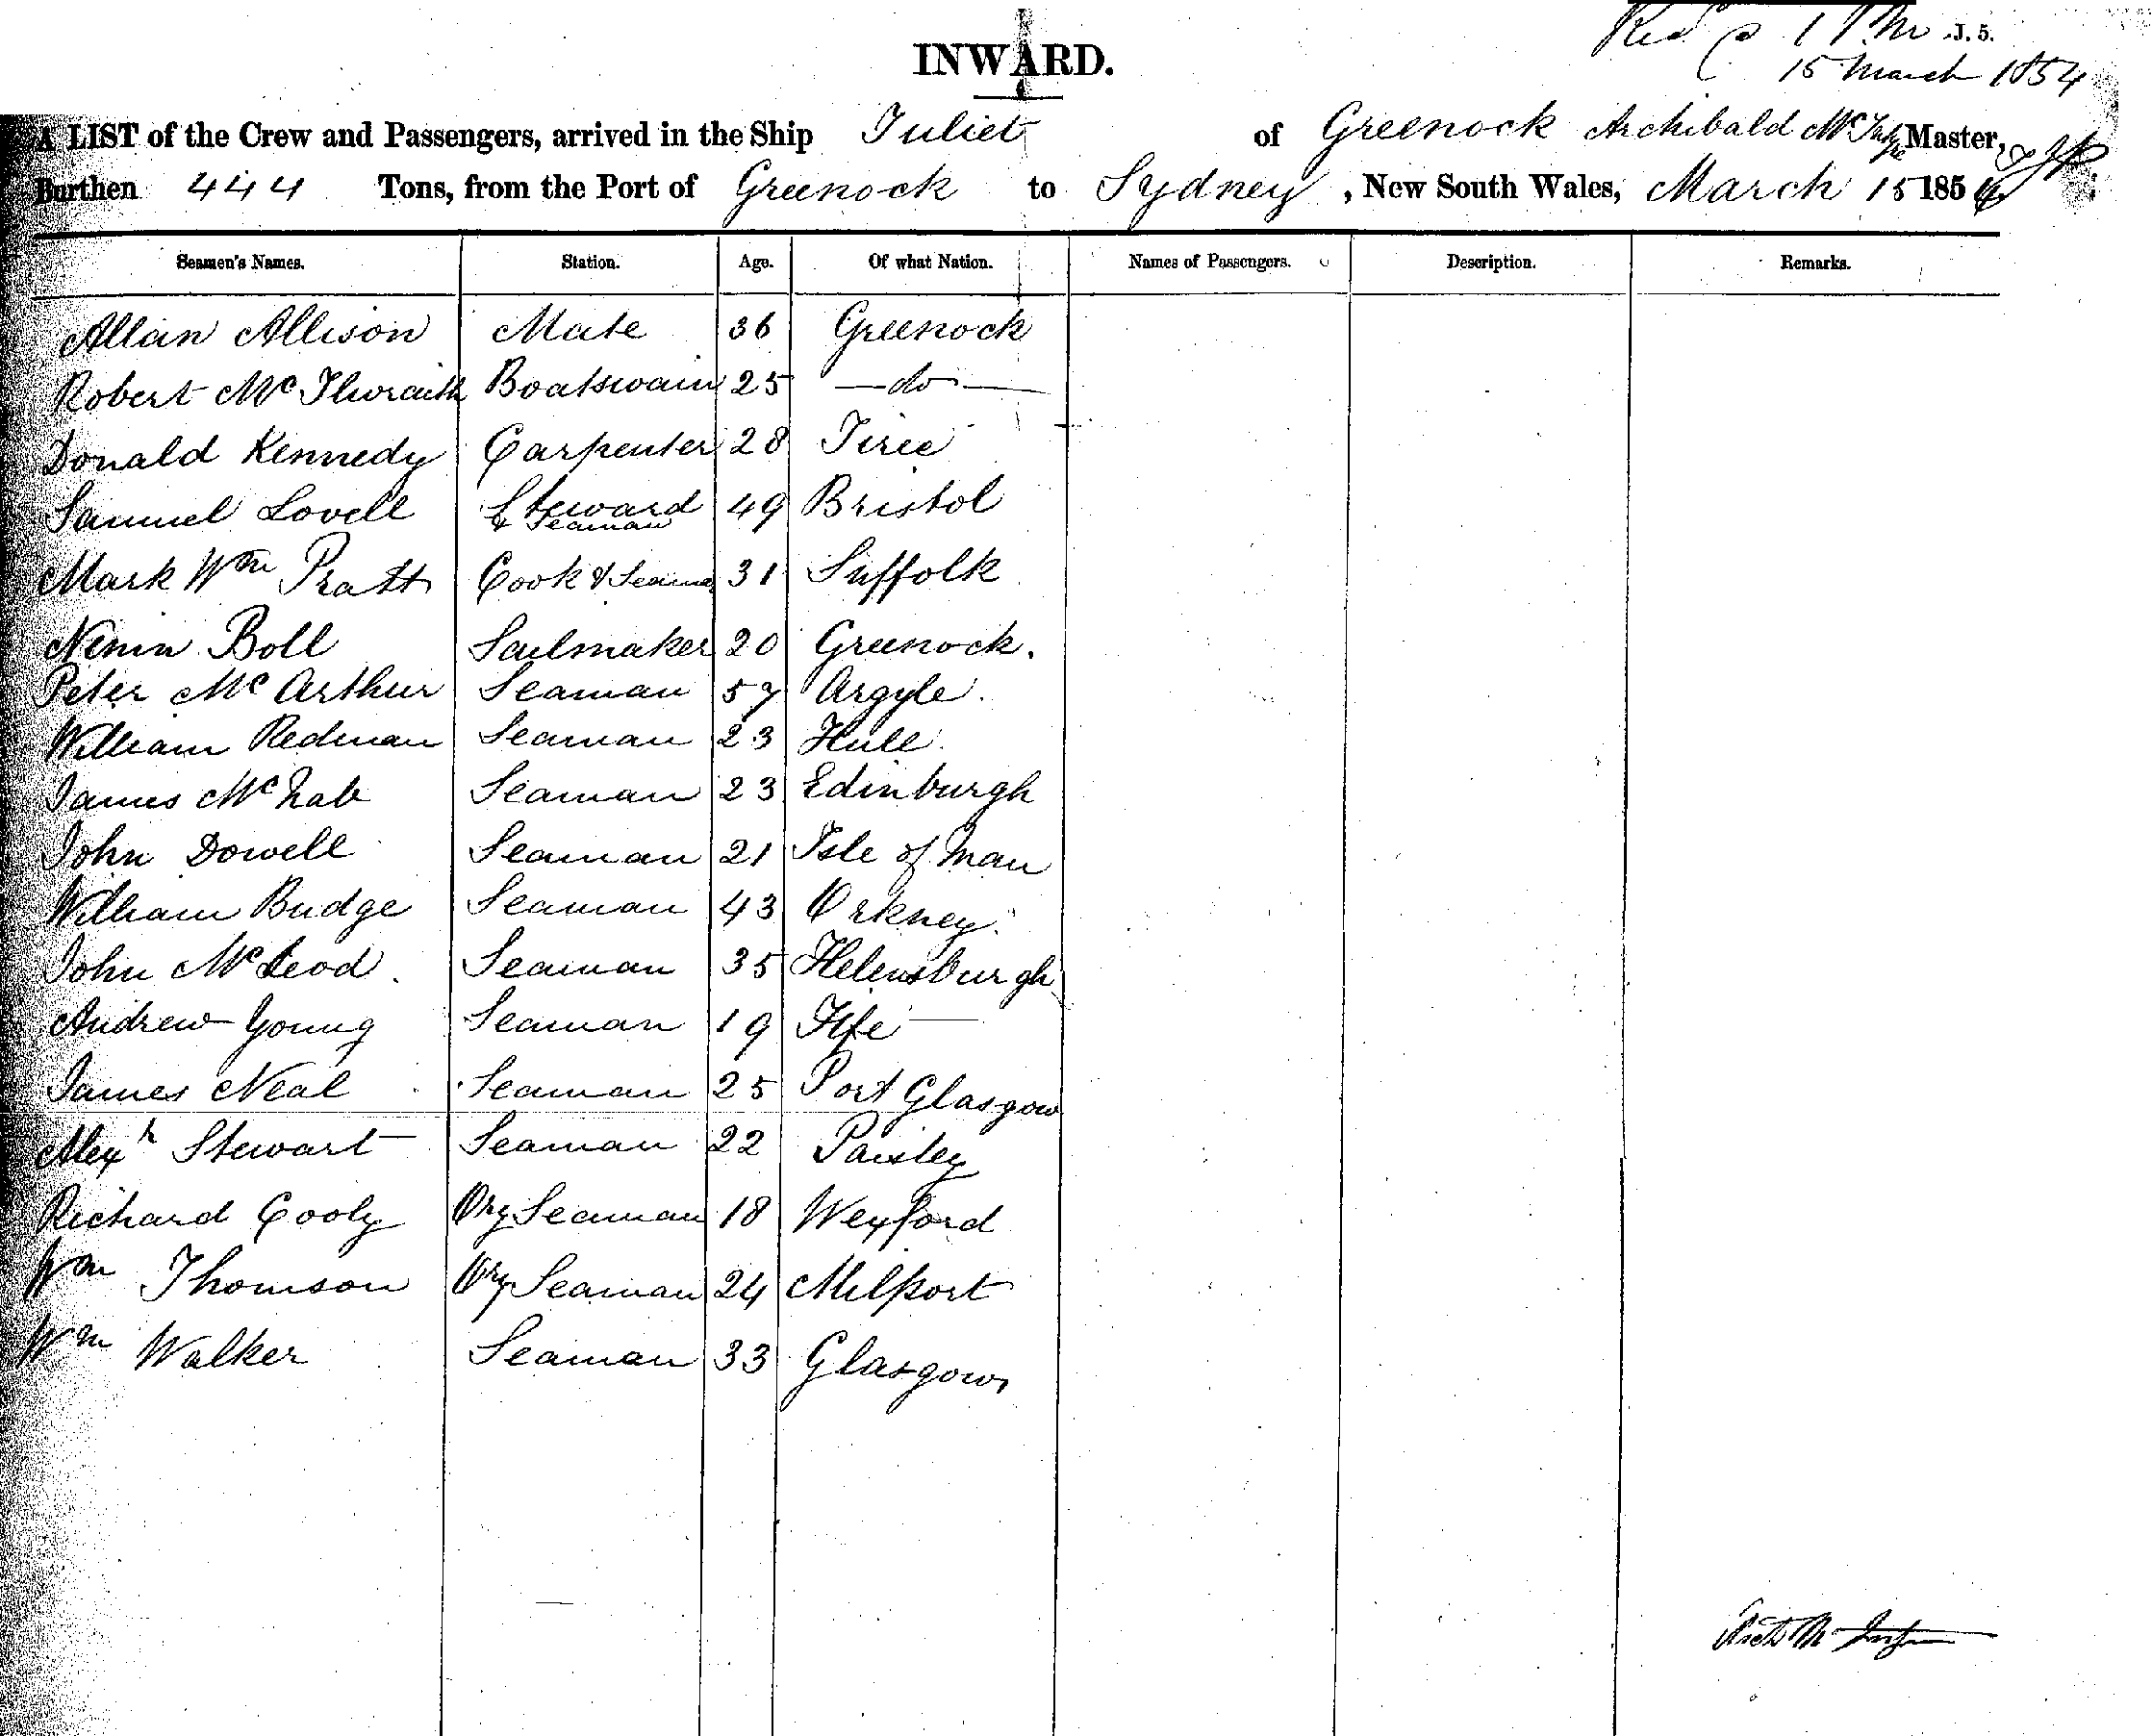 INWARD.
J. 5.
15 March 1854
A LIST of the Crew and Passengers, arrived in the Ship Juliet of Greenock Archibald Master,
Burthen 444 Tons, from the Port of Greenock to Sydney, New South Wales, March 15 1854
Seamen's Names. Station. Age. Of what Nation. Names of Passengers. Description. Remarks.
Allan Allison Mate 36 Greenock
Robert McIlwraith Boatswain 25 — do —
Donald Kennedy Carpenter 28 Tiree
Samuel Lovell Steward & Seaman 49 Bristol
Mark Wm Pratt Cook & Seaman 31 Suffolk
Boll Sailmaker 20 Greenock.
Peter McArthur Seaman 57 Argyle.
William Redman Seaman 23 Hull.
James McNab Seaman 23 Edinburgh
John Dowell Seaman 21 Isle of Man
William Budge Seaman 43 Orkney.
John McLeod. Seaman 35 Helensburgh
Andrew Young Seaman 19 Fife —
James Neal Seaman 25 Port Glasgow
Alexr Stewart Seaman 22 Paisley
Richard Cooly Ory Seaman 18 Wexford
Wm Thomson Ory Seaman 24 Milport
Wm Walker Seaman 33 Glasgow